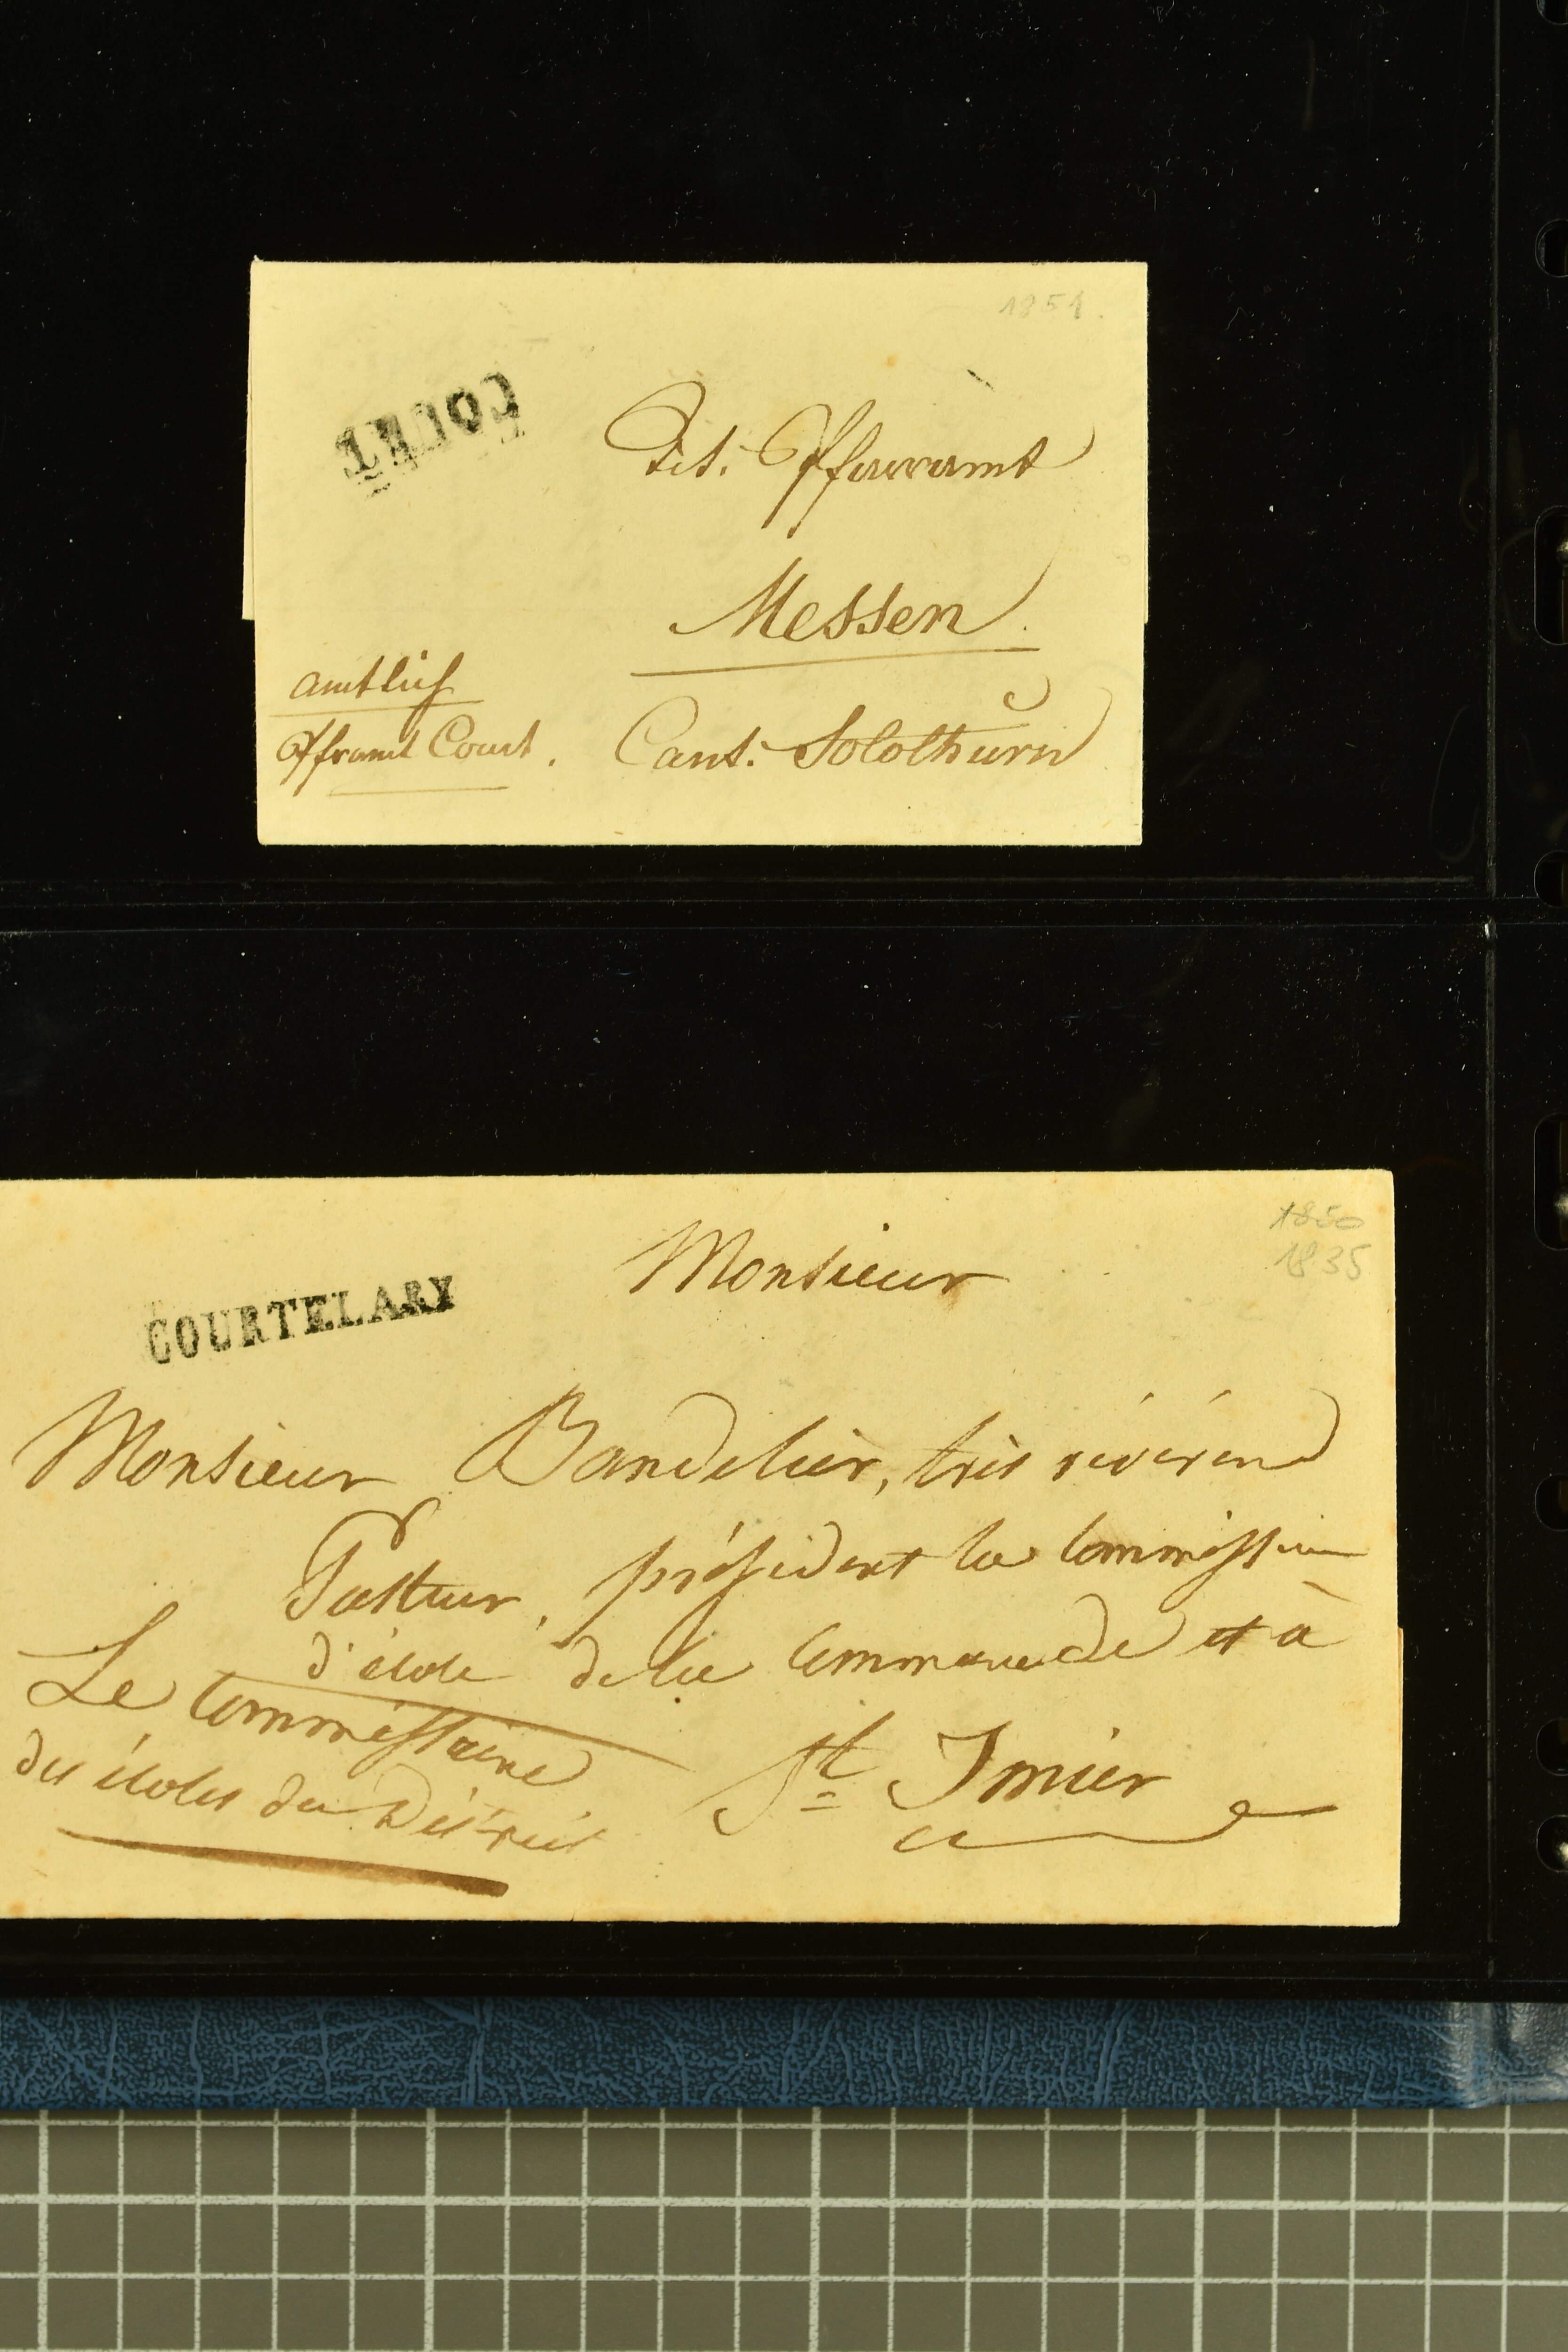 1851.
COURT
Tit: Pfarramt
Messen.
amtlich
Pframt Court.
Cant: Solothurn
1850
1835
COURTELARY
Monsieur
Monsieur Bandelier, très révérend
Pasteur, président la Commission
d'école de la Commune de et à
St Imier
Le Commissaire
des écoles du District